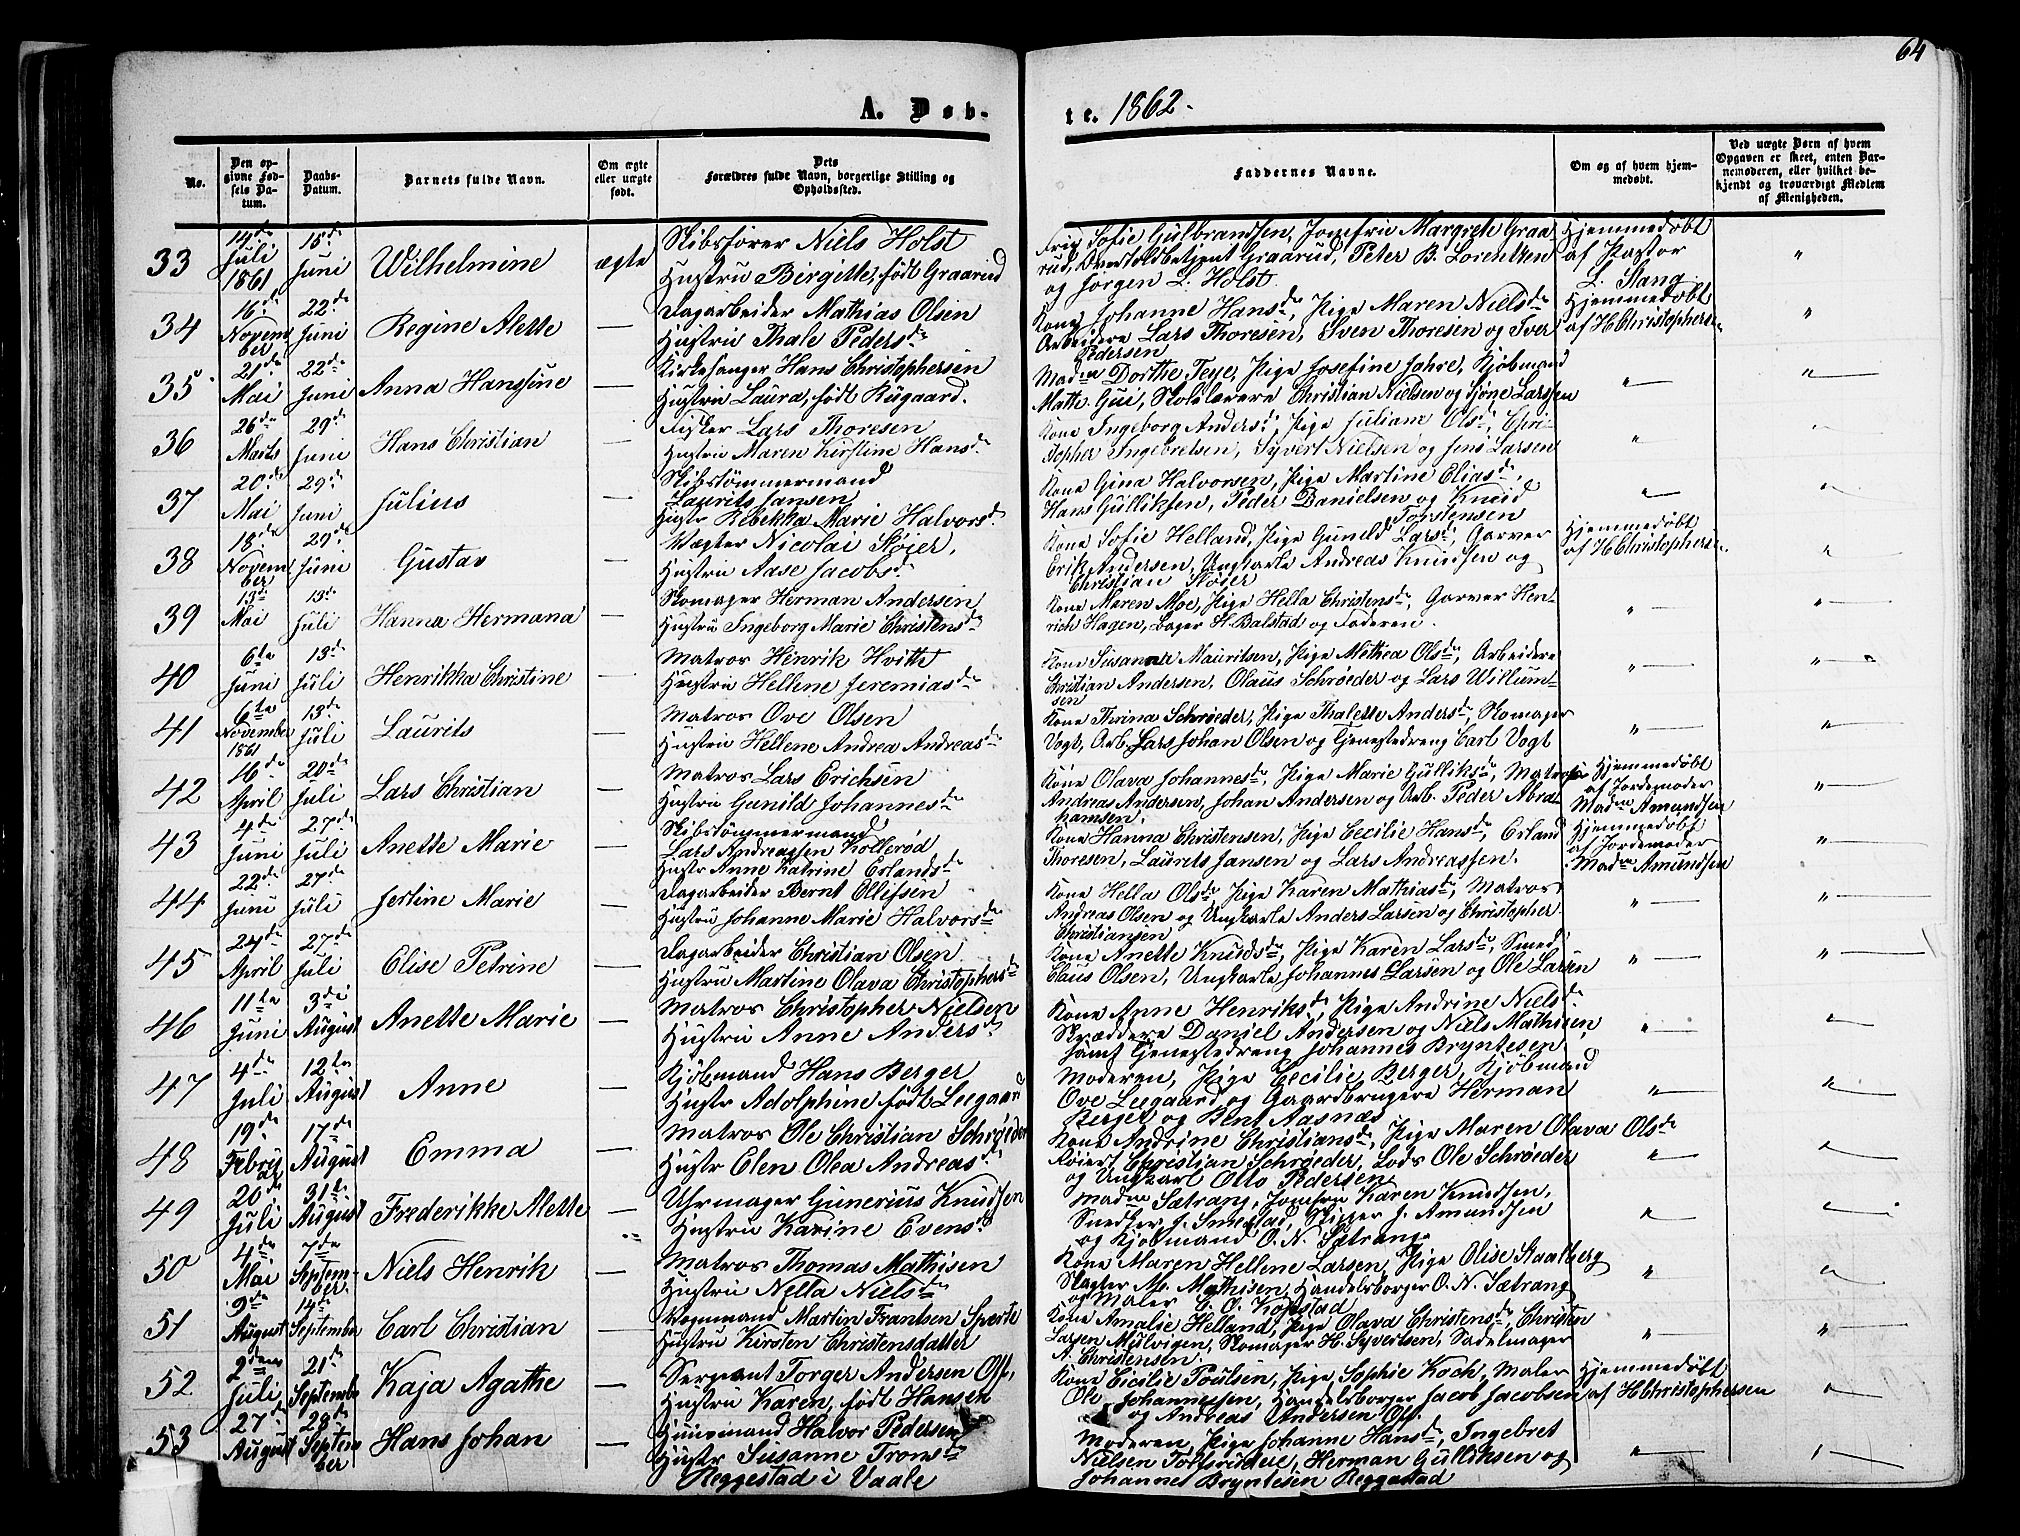 64
A. Døb-
te. 1862.
No.
Den op-
givne Fød-
sels Da-
tum.
Daabs-
Datum.
Barnets fulde Navn.
Om ægte
eller uægte
født.
Dets
Forældres fulde Navn, borgerlige Stilling og
Opholdssted.
Faddernes Navne.
Om og af hvem hjem-
medøbt.
Ved uægte Børn af hvem
Opgaven er skeet, enten Bar-
nemoderen, eller hvilket be-
kjendt og troværdigt Medlem
af Menigheden.
33
14de
Juli
1861
15de
Juni
Wilhelmine
ægte
Skibsfører Niels Holst
Hustru Birgitte, født Graarud
Fru Sofie Gulbrandsen, Jomfru Margreth Graa
rud, Overtoldbetjent Graarud, Peter B. Lorentzen
og Jørgen L. Holst.
Hjemmedøbt
af Pastor
L. Stang
"
34
16de
Novem
ber
22de
Juni
Regine Alette
—
Dagarbeider Mathias Olsen
Hustru Thale Pedersdr
Kone Johanne Hansdr, Pige Maren Nielsdr
Arbeidere Lars Thoresen, Sven Thoresen og Iver
Pedersen
Hjemmedøbt
af HChristophersen
"
35
21de
Mai
22de
Juni
Anna Hansine
—
Kirkesanger Hans Christophersen
Hustru Laura, født Rügaard.
Madm Dorthe Teye, Pige Josefine Johre, Kjøbmand
Math. Gui, Skolelærere Christian Nielsen og Sjøne Larssen
"
"
36
26de
Marts
29de
Juni
Hans Christian
—
Fisker Lars Thoresen
Hustru Maren Kirstine Hansdr
Kone Ingeborg Andersdr, Pige Juliane Olsdr, Chri-
stopher Ingebretsen, Syvert Nielsen og Jens Larsen
"
"
37
20de
Mai
29de
Juni
Julius
—
Skibstømmermand
Laurits Jansen
Hustr Rebekka Marie Halvorsdr
Kone Gina Halvorsen, Pige Martine Eliasdr,
Hans Gulliksen, Peder Danielsen og Knud
Torstensen
"
"
38
18de
Novem
ber
29de
Juni
Gustav
—
Vægter Nicolai Støier,
Hustru Aase Jacobsdr
Kone Sofie Helland, Pige Gunild Larsdr, Garver
Erik Andersen, Ungkarle Andreas Knudsen og
Christian Støier
Hjemmedøbt
af HChristophersen.
"
39
13de
Mai
13de
Juli
Hanna Hermana
—
Skomager Herman Andersen
Hustru Ingeborg Marie Christensdr
Kone Maren Moe, Pige Hella Christensdr, Garver Hen-
rich Hagen, Bager H. Balstad og Faderen.
"
"
40
6te
Juni
13de
Juli
Henrikka Christine
—
Matros Henrik Hvitt
Hustru Hellene Jeremiasdr
Kone Susanna Mauritsen, Pige Mathea Olsdr, Arbeidere
Christian Andersen, Olaus Schrøeder og Lars Willum-
sen
"
"
41
6te
November
1861
13de
Juli
Laurits
—
Matros Ove Olsen
Hustru Hellene Andrea Andreasdr
Kone Thrina Schrøeder, Pige Thalette Andersdr, Skomager
Vogt, Arb. Lars Johan Olsen og Tjenestedreng Carl Vogt
"
"
42
16de
April
20de
Juli
Lars Christian
—
Matros Lars Erichsen
Hustru Gunild Johannesdr
Kone Olava Johannesdr, Pige Marie Gulliksdr, Matroser
Andreas Andersen, Johan Andersen og Arb. Peder Abra-
hamsen.
Hjemmedøbt
af Jordemoder
Madm Amundsen
"
43
4de
Juni
27de
Juli
Anette Marie
—
Skibstømmermand
Lars Andreassen Kollerød
Hustr Anne Katrine Erlandsdr
Kone Hanna Christensen, Pige Cecilie Hansdr, Erland
Thoresen, Laurits Jansen og Lars Andreassen.
Hjemmedøbt
af Jordemoder
Madm Amundsen
"
44
22de
Juni
27de
Juli
Jertine Marie
—
Dagarbeider Bernt Ollefsen
Hustru Johanne Marie Halvorsdr
Kone Hella Olsdr Pige Karen Mathiasdr, Matros
Andreas Olsen og Ungkarle Anders Larsen og Christopher
Christiansen
"
"
45
24de
April
27de
Juli
Elise Petrine
—
Dagarbeider Christian Olsen.
Hustru Martine Olava Christophersdr
Kone Anette Knudsdr, Pige Karen Larsdr, Smed
Claus Olsen, Ungkarle Johannes Larsen og Ole Larsen
"
"
46
11te
Juni
3die
August
Anette Marie
—
Matros Christopher Nielsen
Hustru Anne Andersdr
Kone Anne Henriksdr, Pige Andrine Nielsdr
Skræddere Daniel Andersen og Niels Mathisen,
samt Tjenestedreng Johannes Bryntesen
"
"
47
4de
Juli
12te
August
Anne
—
Kjøbmand Hans Berger
Hustr Adolphine født Leegaard
Moderen, Pige Cecilie Berger, Kjøbmand
Ove Leegaard og Gaardbrugere Herman
Berger og Bent Aasnæs
"
"
48
19de
Febru
ar
17de
August
Emma
—
Matros Ole Christian Schrøder
Hustr Elen Olea Andreasdr
Kone Andrine Christiansdr, Pige Maren Olava Olsdr
Føiert Christian Schrøeder, Lods Ole Schrøeder
og Ungkarl Otto Pedersen
"
"
49
20de
Juli
31te
August
Frederikke Alette
—
Uhrmager Gunerius Knudsen
Hustru Karine Evensdr
Madm Sætrang, Jomfru Karen Knudsen,
Snedker J. Smestad, Skipper J. Amundsen
og Kjøbmand O. N. Sætrang
"
"
50
4de
Mai
7de
Septem-
ber
Niels Henrik
—
Matros Thomas Mathisen
Hustru Nella Nielsdr
Kone Maren Hellene Larsen, Pige Olise Staalberg
Slagter M. Mathisen, Handelsborger O. N. Sætrang
og Maler C. O. Kopstad
"
"
51
9de
August
14de
Septembe
Carl Christian
—
Vognmand Martin Frantsen Sperle
Hustru Kirsten Christensdatter
Kone Amalie Helland, Pige Olava Christensdr, Christen
Larsen Mulvigen, Skomager H. Syvertsen, Sadelmager
A. Christensen.
"
"
52
2den
Juli
21de
Septembe
Kaja Agathe
—
Sergeant Torger Andersen Oft,
Hustru Karen, født Hansen
Kone Cecilie Poulsen, Pige Sophie Koch, Maler
Ole Johannessen, Handelsborger Jacob Jacobsen
og Andreas Andersen Oft.
Hjemmedøbt
af HChristophersen
"
53
27de
August
28de
Septem
ber
Hans Johan
—
Huusmand Halvor Pedersen
Hustr Susanne Tronsdr
Heggestad i Vaale
Moderen, Pige Johanne Hansdr, Ingebret
Nielsen Toltsrødeie, Herman Gulliksen og
Johannes Bryntesen Reggestad
"
"